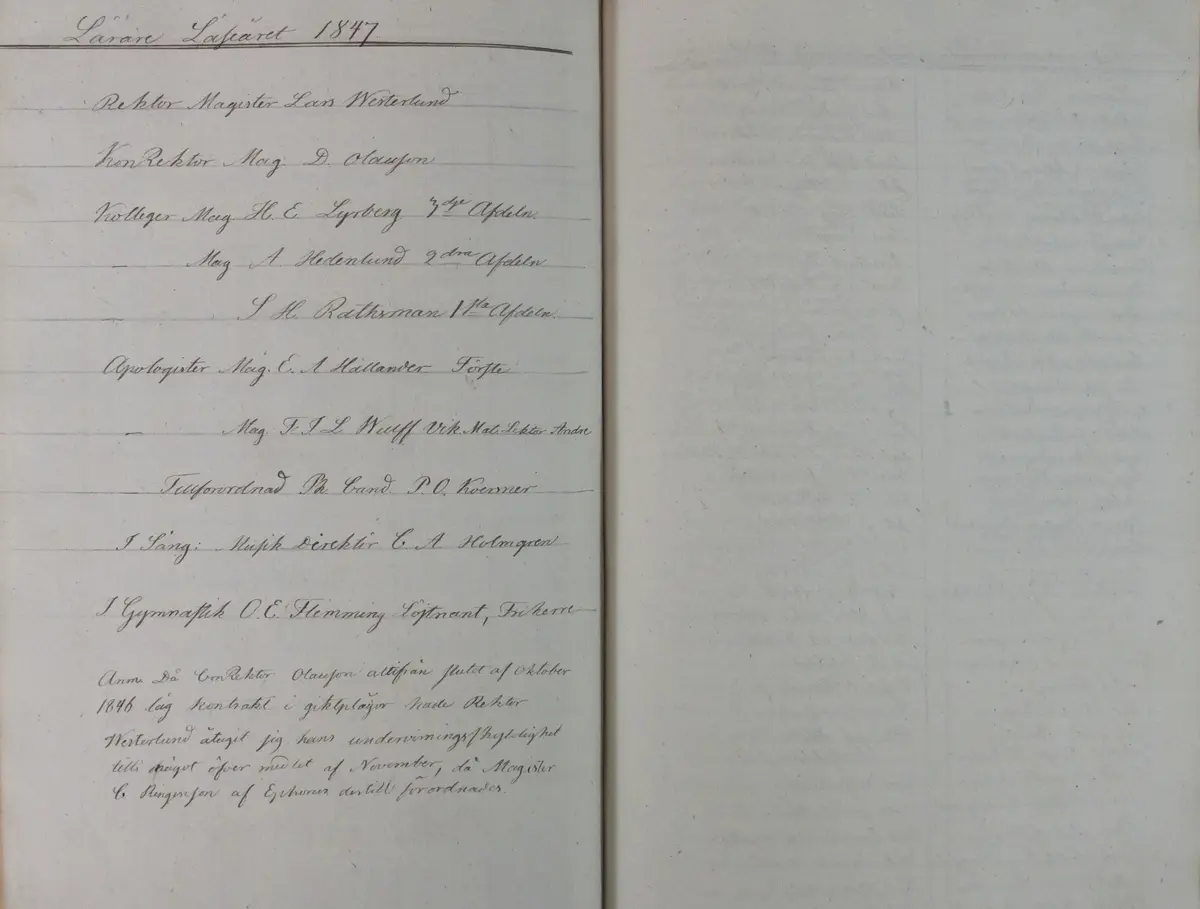 Lärare Läseåret 1847
Rektor Magister Lars Westerlund
KonRektor Mag. D. Olauson
Kolleger Mag H. E. Lyrberg 3dje Afdeln.
— Mag A Hedenlund 2dra Afdeln
— S H. Rathsman 1sta Afdeln.
Apologister Mag. E. A Hallander Förste
— Mag F. I L Wulff Vik Mat. Lektor Andre
Tillforordnad Ph. Cand. P. O. Koermer
I Sång: Musik Direktör C. A Holmgren
I Gymnastik O. E. Flemming Löjtnant, Friherre
Anm. Då ConRektor Olauson alltifrån slutet af Oktober
1846 låg kontrakt i giktplågor hade Rektor
Westerlund åtagit sig hans undervisningsskyldighet
till något öfver medlet af November, då Magister
C Ringenson af Ephorus dertill förordnades.